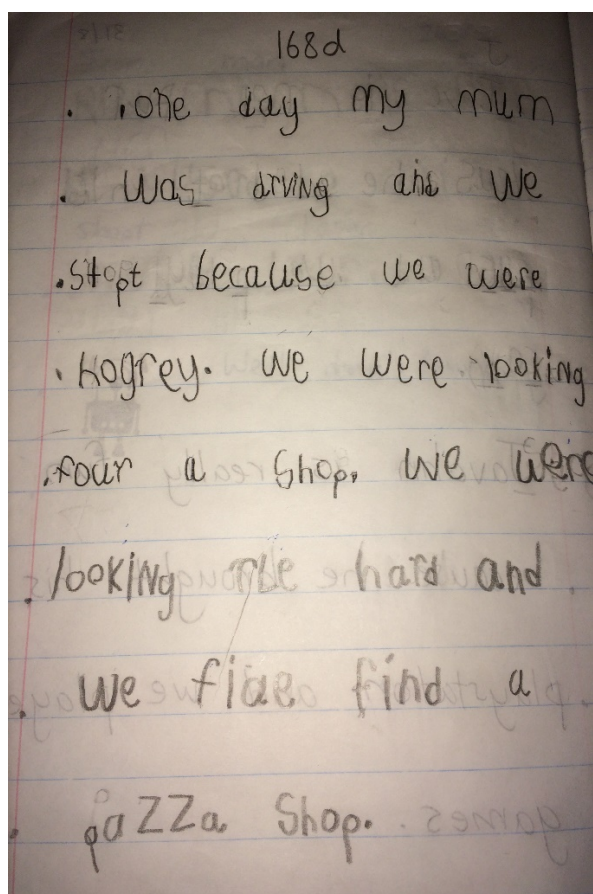 168d
. .one day my mum
. was drving and we
.stopt because we were
. hogrey. we were looking
.four a shop. we were
. looking rle hard and
. we fiae find a
. pazza shop.